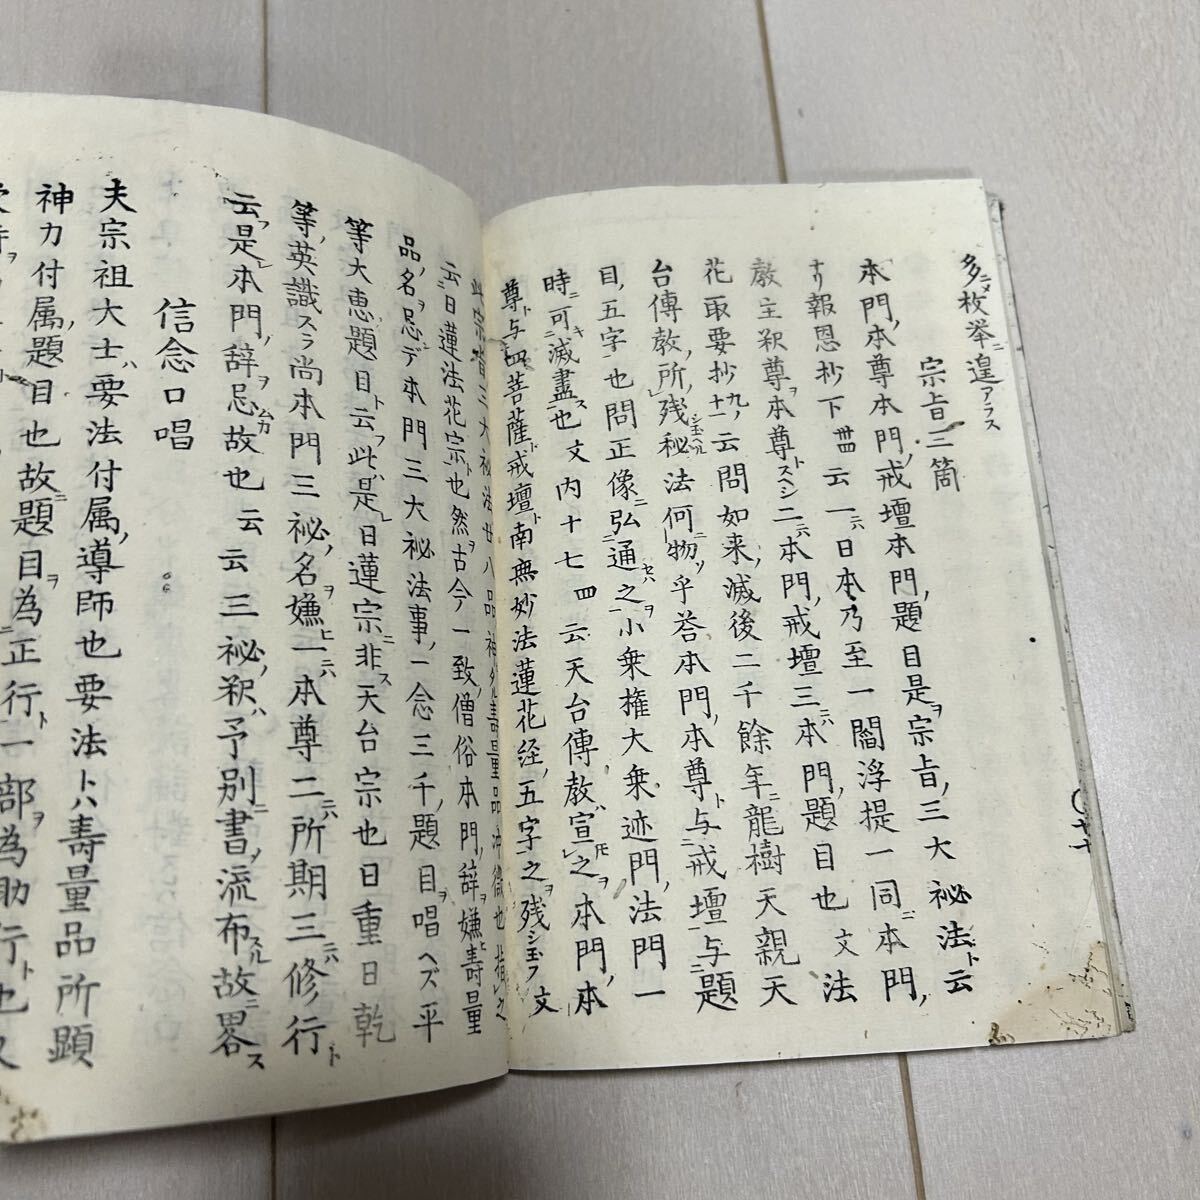 多ニメ枚挙ニ遑アラス
宗旨三箇
本門ノ本尊本門ノ戒壇本門ノ題目是ヲ宗旨ノ三大祕法ト云
ナリ報恩抄下云一ニハ日本乃至一閻浮提一同ニ本門ノ
教主釈尊ヲ本尊トスヘシ二ニハ本門ノ戒壇三ニハ本門ノ題目也文法
花取要抄云問如来ノ滅後二千餘年龍樹天親天
台傳教ノ所残シ玉ヘル秘法何物ソ乎荅本門ノ本尊ト与戒壇与題
目ノ五字也問正像ニ弘通之小乗権大乗迹門ノ法門一
時ニ可キ滅盡ス也文内十七四云天台傳教ハ宣之ヲ本門ノ本
尊ト与四菩薩ト戒壇ト南無妙法蓮花経ノ五字之ヲ残シ玉フ文
此宗旨三大祕法廿八品神力寿量品
云日蓮法花宗ト也然ヲ古今一致ノ僧俗本門ノ辞嫌ヒ壽量
品ノ名ヲ忌デ本門三大祕法事ノ一念三千ノ題目唱ヘズ平
等大恵題目ト云フ此ハ是レ日蓮宗ニ非ス天台宗也日重日乾
等ノ英識スラ尚本門三祕ノ名ヲ嫌ヒ一ニハ本尊二ニハ所期三ニハ修行ト
云フ是レ本門ノ辞ヲ忌ムカ故也云云三祕ノ釈ハ予別ニ書ノ流布スル故ニ畧ス
信念口唱
夫宗祖大士ハ要法付属ノ導師也要法トハ壽量品所顕
神力付属ノ題目也故ニ題目ヲ為ニ正行ト一部ヲ為助行ト也